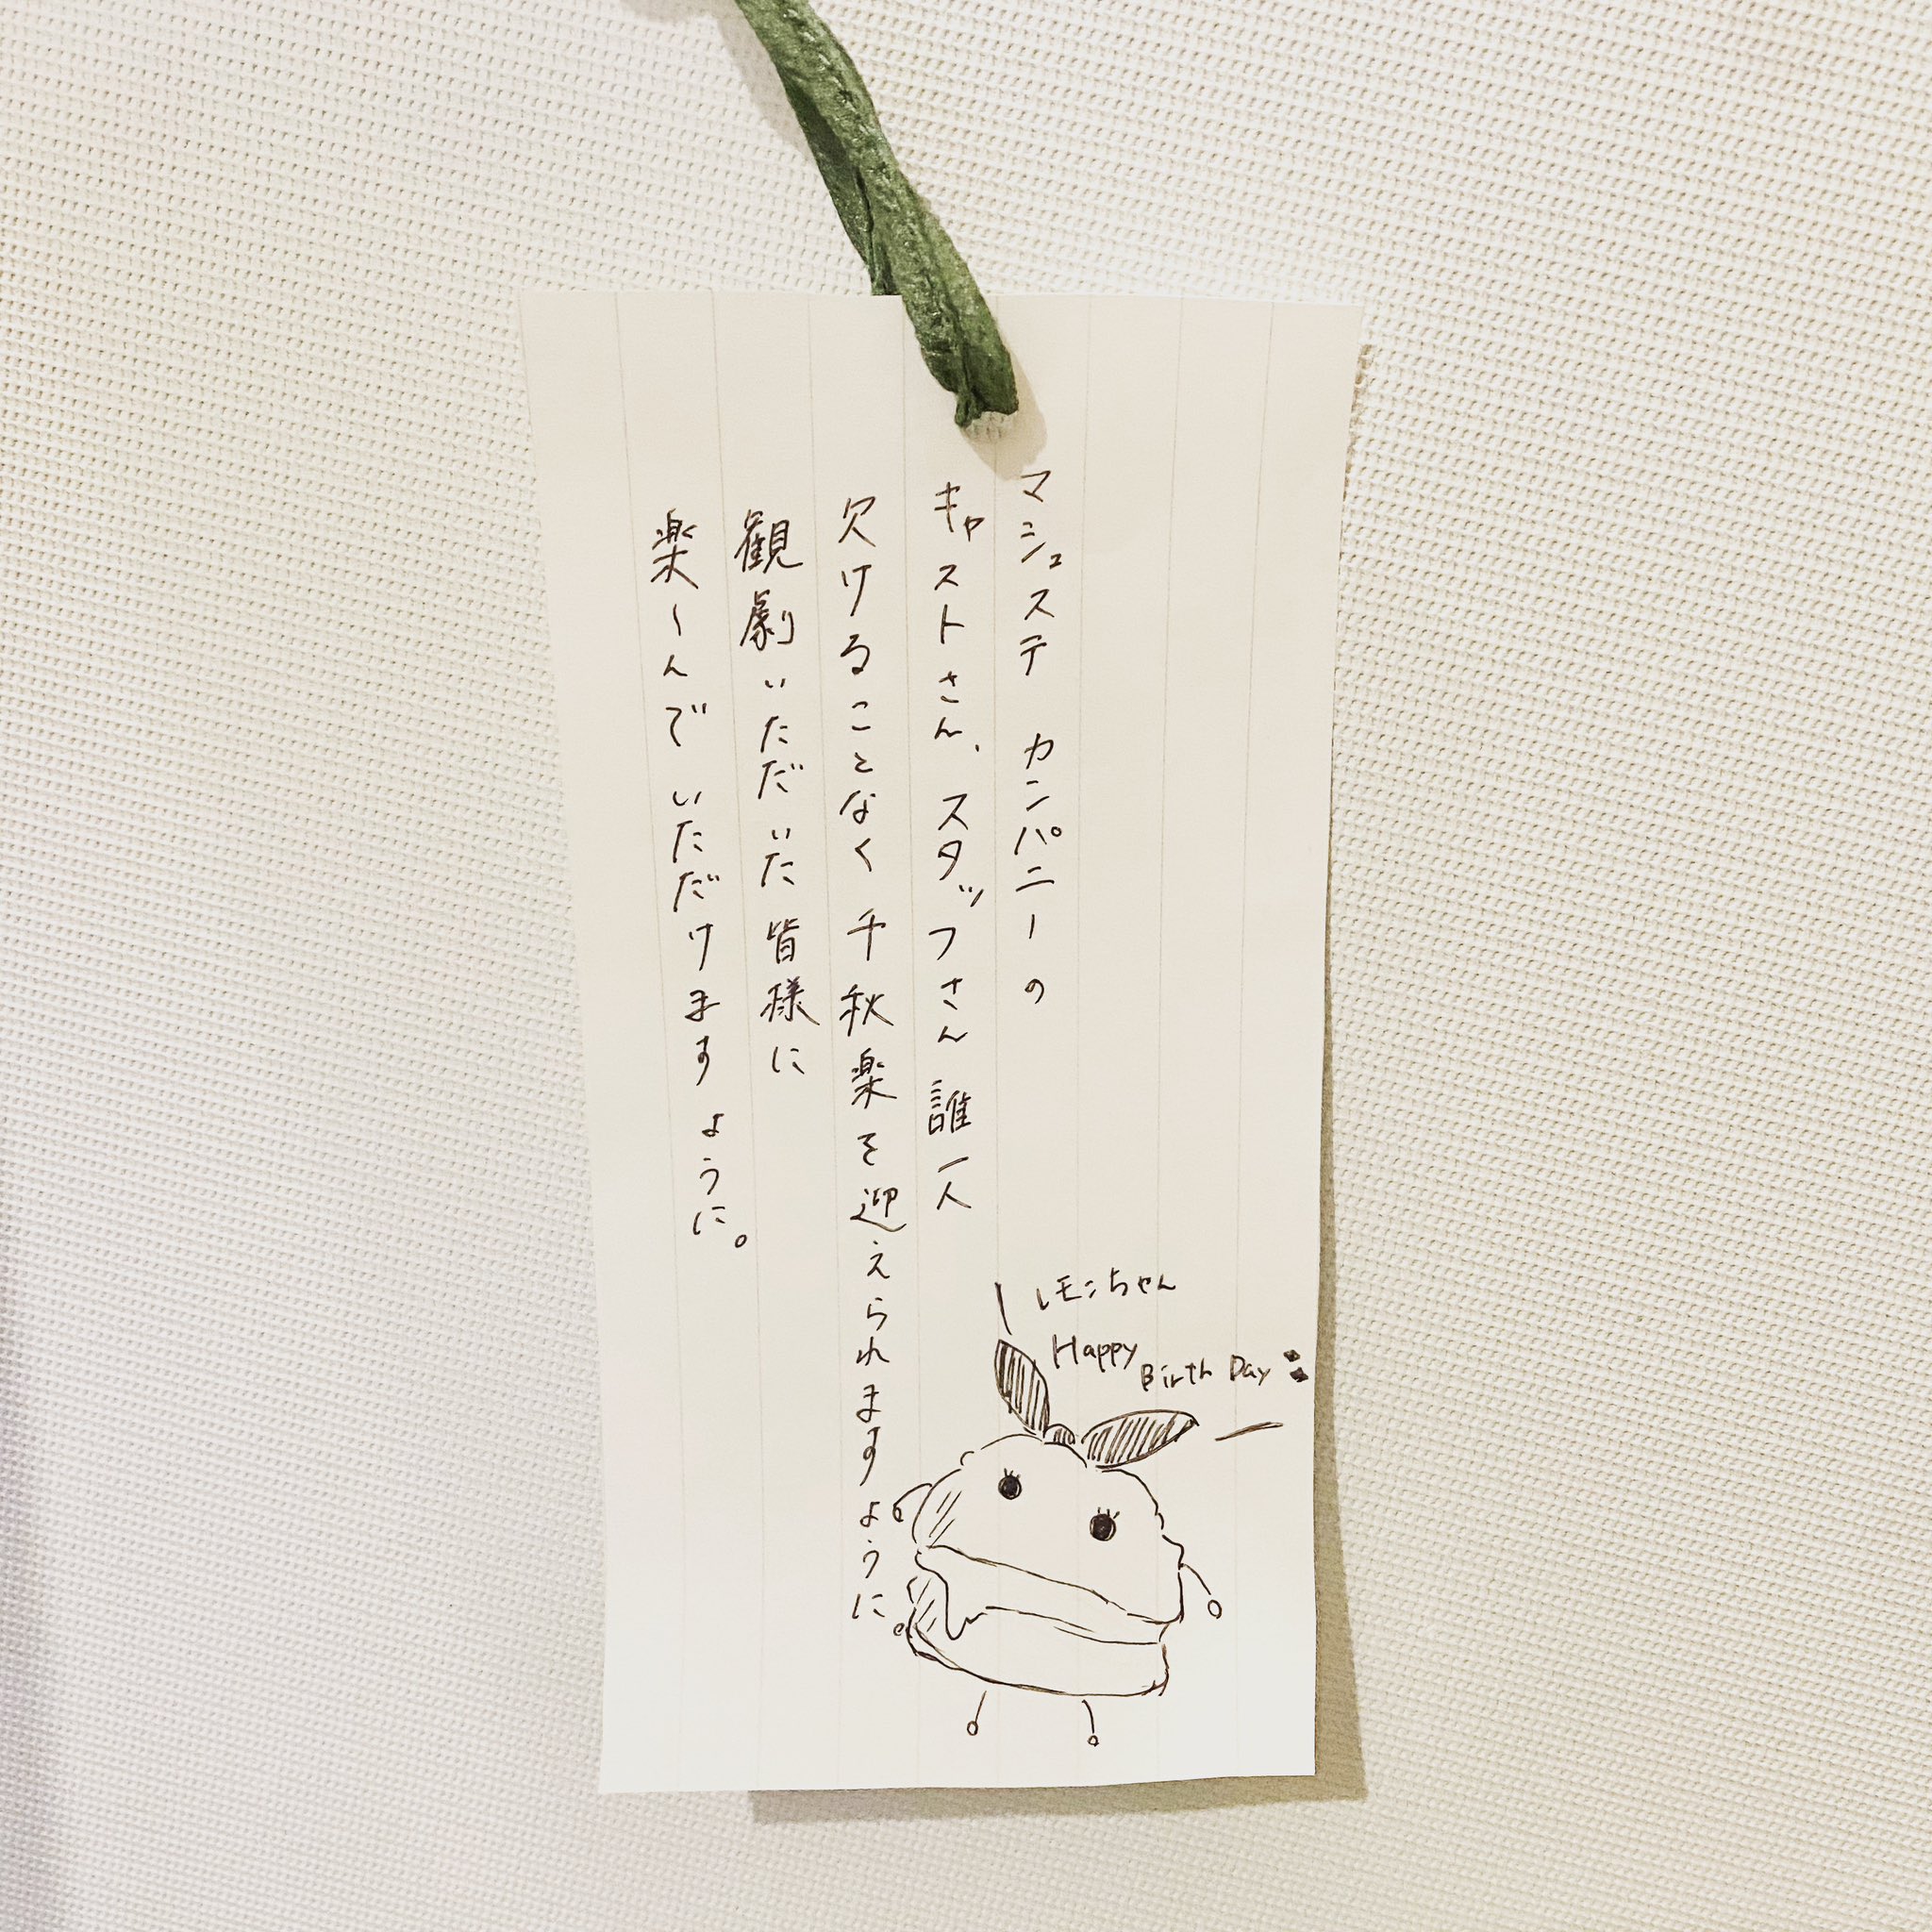 マシュステ カンパニーの
キャストさん、スタッフさん 誰一人
欠けることなく 千秋楽を迎えられます ように。
観劇いただいた皆様に
楽〜んで いただけます ように。
レモンちゃん
Happy
Birth Day